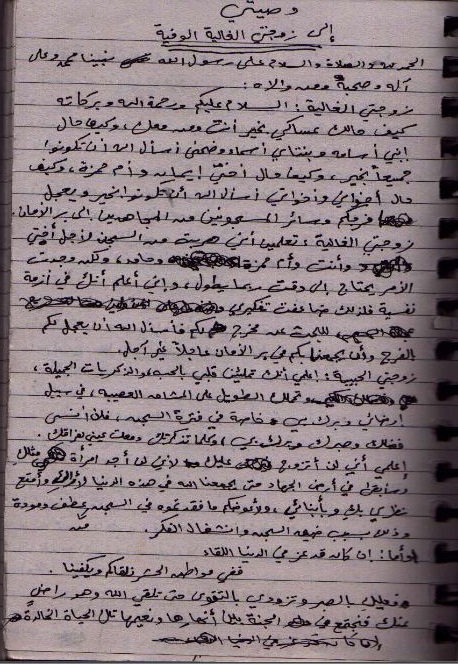 وصيتي
إلى زوجتي الغالية الوفية
الحمد لله والصلاة والسلام على رسول الله نبينا محمد وعلى
آله وصحبه ومن والاه :
زوجتي الغالية : السلام عليكم ورحمة الله وبركاته
كيف حالك عساكي بخير أنت ومن معك ، وكيف حال
إبني أسامه وبنتاي أسماء و أسأل الله أن تكونوا
جميعاً بخير ، وكيف حال أختي إيمان وأم حمزة ، وكيف
حال أخواتي أسأل الله أن تكونوا بخير ويعجل
فرجكم وسائر المسجونين من المجاهدين إلى بر الأمان .
زوجتي الغالية ، تعلمين أني هربت من السجن لأجل أختي
وأنت وأم حمزة ولكن وجدت
الأمر يحتاج إلى وقت ربما سيطول ، وإني أعلم أنك في أزمة
نفسية فلذلك ضاعفت تفكيري
للبحث عن مخرج لكم فأسأل الله أن يعجل لكم
بالفرج وأن يجمعنا بكم في بر الأمان عاجلاً غير آجل .
زوجتي الحبيبة : إعلمي أنك تملئين قلبي بالحب والذكريات الجميلة ،
وتحملك الطويل على المشاهد العصيبة ، في سبيل
إرضائي وبرك بي خاصة في فترة السجن ، فلن أنسى
فضلك وصبرك وبرك بي ، وكلما تذكرتك دمعت عيني لفراقك .
إعلمي أني لن أتزوج عليك لأني لن أجد امرأة مثلك
وسأبقى في أرض الجهاد حتى يجمعنا الله في هذه الدنيا وأمتع
نظري بك وبأبنائي ، ولأعوضكم ما فقدتموه في السجن من عطف ومودة
وذلك بسبب ضيق السجن وانشغال الفكر .
وأما : إن كان قد عز في الدنيا اللقاء
ففي مواطن الحشر نلقاكم ويكفينا .
فعليك بالصبر وتزودي بالتقوى حتى تلقي الله وهو راضٍ
عنك فنجتمع في الجنة بين أنهارها ونعيمها تلك الحياة الخالدة